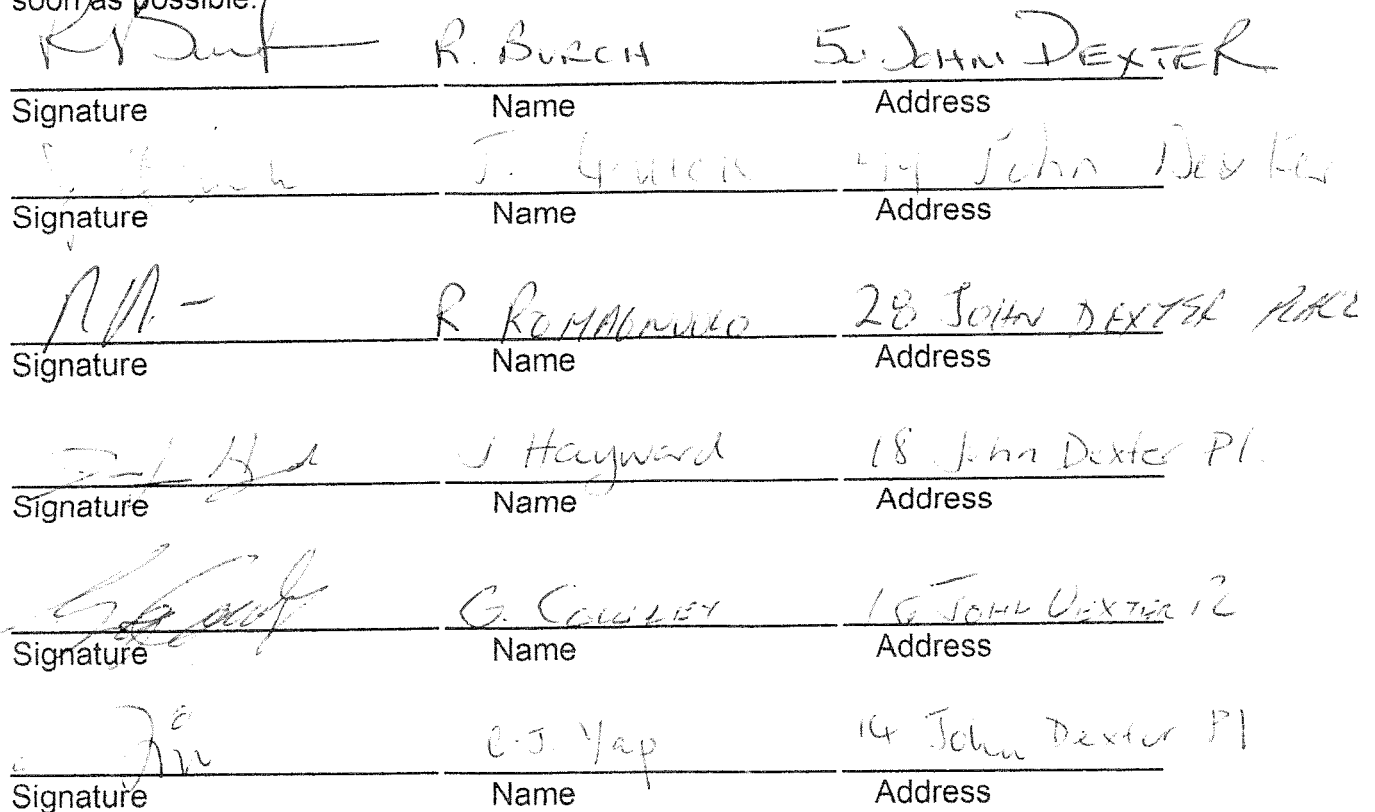 soon as possible.
R. BURCH 50 JOHN DEXTER
Signature Name Address
J. 44 John Dexter
Signature Name Address
R 28 JOHN DEXTER PLACE
Signature Name Address
J Hayward 18 John Dexter Pl.
Signature Name Address
G. COWLEY JOHN DEXTER
Signature Name Address
C.J. Yap 14 John Dexter Pl
Signature Name Address